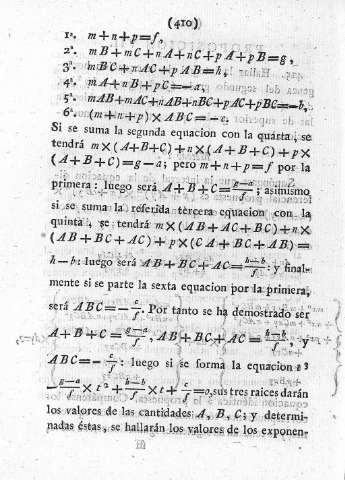 (410)
1°. m+n+p=f,
2°. mB+mC+nA+nC+pA+pB=g,
3°. mBC+nAC+pAB=h,
4°. mA+nB+pC=-a,
5°. mAB+mAC+nAB+nBC+pAC+pBC=-b,
6°. (m+n+p)×ABC=-c.
Si se suma la segunda equacion con la quarta, se
tendrá m×(A+B+C)+n×(A+B+C)+p×
(A+B+C)=g-a; pero m+n+p=f por la
primera: luego será A+B+C=\frac{g-a}{f}; asimismo
si se suma la referida tercera equacion con la
quinta, se tendrá m×(AB+AC+BC)+n×
(AB+BC+AC)+p×(CA+BC+AB)=
h-b: luego será AB+BC+AC=\frac{h-b}{f}: y final-
mente si se parte la sexta equacion por la primera,
será ABC=-\frac{c}{f}. Por tanto se ha demostrado ser
A+B+C=\frac{g-a}{f}, AB+BC+AC=\frac{h-b}{f}, y
ABC=-\frac{c}{f}: luego si se forma la equacion t³
-\frac{g-a}{f}×t²+\frac{h-b}{f}×t+\frac{c}{f}=0, sus tres raices darán
los valores de las cantidades A, B, C; y determi-
nadas éstas, se hallarán los valores de los exponen-